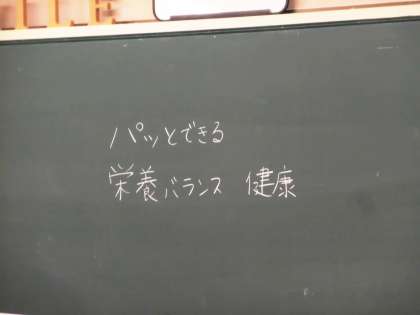 パッとできる
栄養バランス 健康